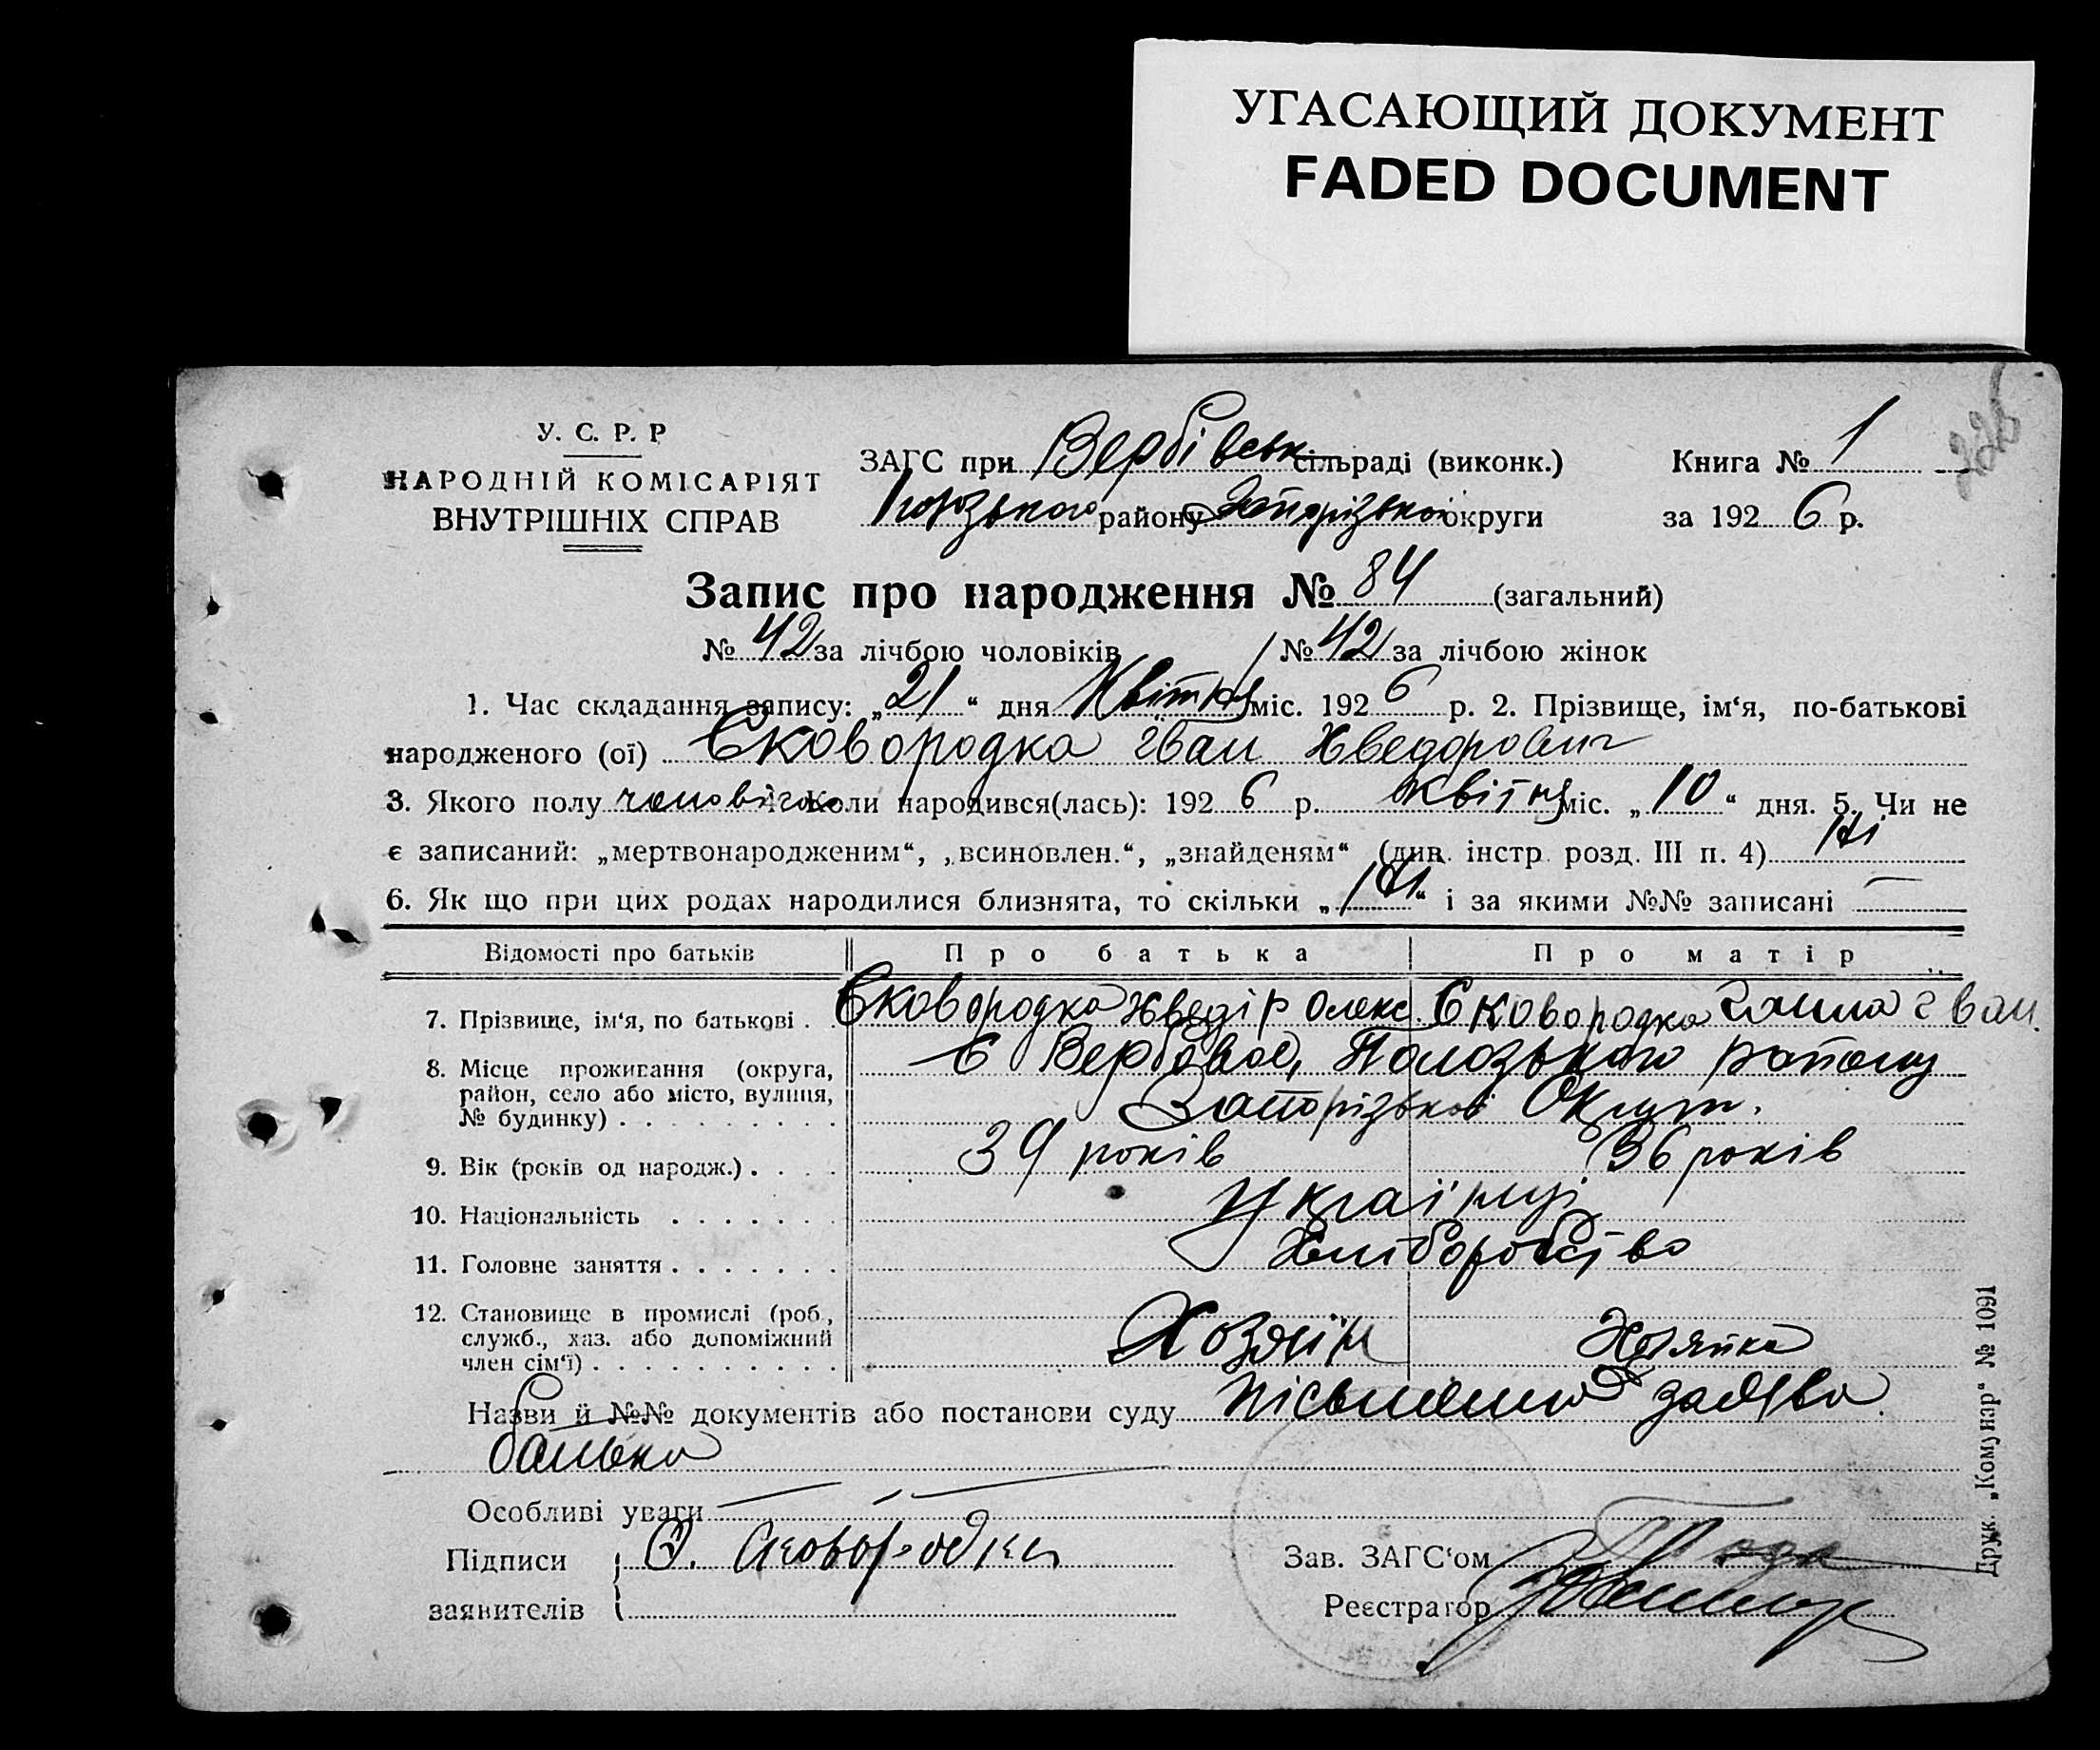 УГАСАЮЩИЙ ДОКУМЕНТ
FADED DOCUMENT
У. С. Р. Р
НАРОДНІЙ КОМІСАРІЯТ
ВНУТРІШНІХ СПРАВ
ЗАГС при Вербівськ сільраді (виконк.)
Книга № 1
району Запорізької округи
за 1926 р.
Запис про народження № 84 (загальний)
№ 42 за лічбою чоловіків / № 42 за лічбою жінок
1. Час складання запису: „21“ дня Квітня міс. 1926 р. 2. Прізвище, ім‘я, по-батькові
народженого (ої) Сковородка Іван Хведорович
3. Якого полу чоловічого 4. Коли народився(лась): 1926 р. квітня міс. „10“ дня. 5. Чи не
є записаний: „мертвонародженим“, „всиновлен.“, „знайденям“ (див. інстр. розд. III п. 4) Ні
6. Як що при цих родах народилися близнята, то скільки „Ні“ і за якими №№ записані —
Відомості про батьків Про батька Про матір
7. Прізвище, ім‘я, по батькові . . Сковородка Хведір Олекс. Сковородка Ганна Іван.
8. Місце проживання (округа, район, село або місто, вулиця, № будинку) . . . . . . . . .
С Вербове, Пологського району
Запорізької Округи.
9. Вік (років од народж.) . . . . 39 років 36 років
10. Національність . . . . . . . Українці
11. Головне заняття . . . . . . . Хліборобство
12. Становище в промислі (роб., служб., хаз. або допоміжний член сім‘ї) . . . . . . . . . .
Хозяїн Хозяйка
Назви й №№ документів або постанови суду Письменна заява
батька
Особливі уваги —
Підписи заявителів
Сковородка
Зав. ЗАГС‘ом
Реєстратор
Друк. „Комунар“ № 1091